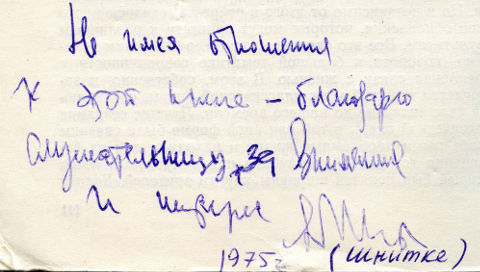 Не имея отношения
к этой книге – благодарю
слушательницу за внимание
и интерес
1975г (Шнитке)